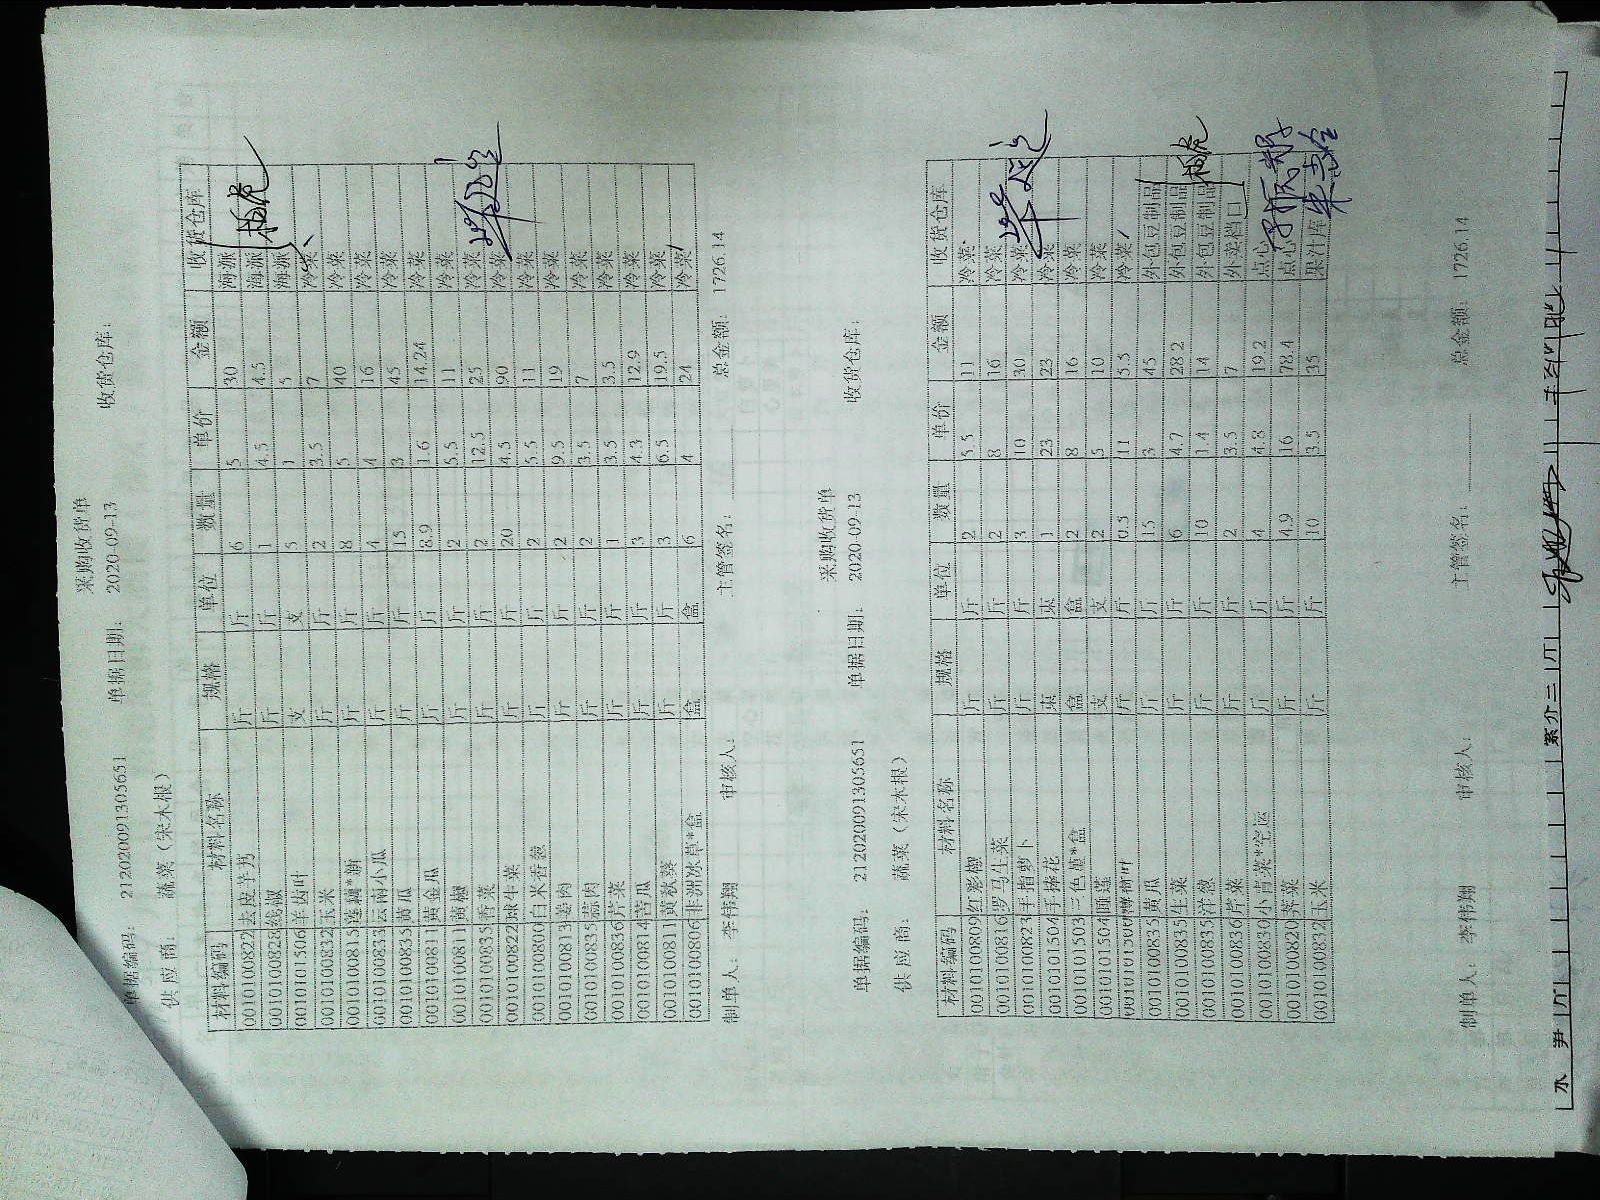 采购收货单
单据编码： 2120200913056​51 单据日期： 2020-09-13 收货仓库：
供应商： 蔬菜（宋木根）
材料编码 材料名称 规格 单位 数量 单价 金额 收货仓库
0010100822 去皮芋艿 斤 斤 6 5 30 海派
0010100828 线椒 斤 斤 1 4.5 4.5 海派
0010101506 羊齿叶 支 支 5 1 5 海派
0010100832 玉米 斤 斤 2 3.5 7 冷菜
0010100815 莲藕*新 斤 斤 8 5 40 冷菜
0010100833 云南小瓜 斤 斤 4 4 16 冷菜
0010100835 黄瓜 斤 斤 15 3 45 冷菜
0010100811 黄金瓜 斤 斤 8.9 1.6 14.24 冷菜
0010100811 黄椒 斤 斤 2 5.5 11 冷菜
0010100835 香菜 斤 斤 2 12.5 25 冷菜
0010100822 球生菜 斤 斤 20 4.5 90 冷菜
0010100800 白米香葱 斤 斤 2 5.5 11 冷菜
0010100813 姜肉 斤 斤 2 9.5 19 冷菜
0010100835 蒜肉 斤 斤 2 3.5 7 冷菜
0010100836 芹菜 斤 斤 1 3.5 3.5 冷菜
0010100814 苦瓜 斤 斤 3 4.3 12.9 冷菜
0010100811 黄秋葵 斤 斤 3 6.5 19.5 冷菜
0010100806 非洲冰草*盒 盒 盒 6 4 24 冷菜
制单人： 李伟翔 审核人： 主管签名： 总金额： 1726.14
采购收货单
单据编码： 212020091305651 单据日期： 2020-09-13 收货仓库：
供应商： 蔬菜（宋木根）
材料编码 材料名称 规格 单位 数量 单价 金额 收货仓库
0010100809 红彩椒 斤 斤 2 5.5 11 冷菜
0010100816 罗马生菜 斤 斤 2 8 16 冷菜
0010100823 手指萝卜 斤 斤 3 10 30 冷菜
0010101504 手捧花 束 束 1 23 23 冷菜
0010101503 三色堇*盒 盒 盒 2 8 16 冷菜
0010101504 睡莲 支 支 2 5 10 冷菜
斤 斤 0.5 11 5.5 冷菜
0010100835 黄瓜 斤 斤 15 3 45 外包豆制品
0010100835 生菜 斤 斤 6 4.7 28.2 外包豆制品
0010100835 洋葱 斤 斤 10 1.4 14 外包豆制品
0010100836 芹菜 斤 斤 2 3.5 7 外卖档口
0010100830 小青菜*空运 斤 斤 4 4.8 19.2 点心
0010100820 荠菜 斤 斤 4.9 16 78.4 点心
0010100832 玉米 斤 斤 10 3.5 35 果汁库
制单人： 李伟翔 审核人： 主管签名： 总金额： 1726.14